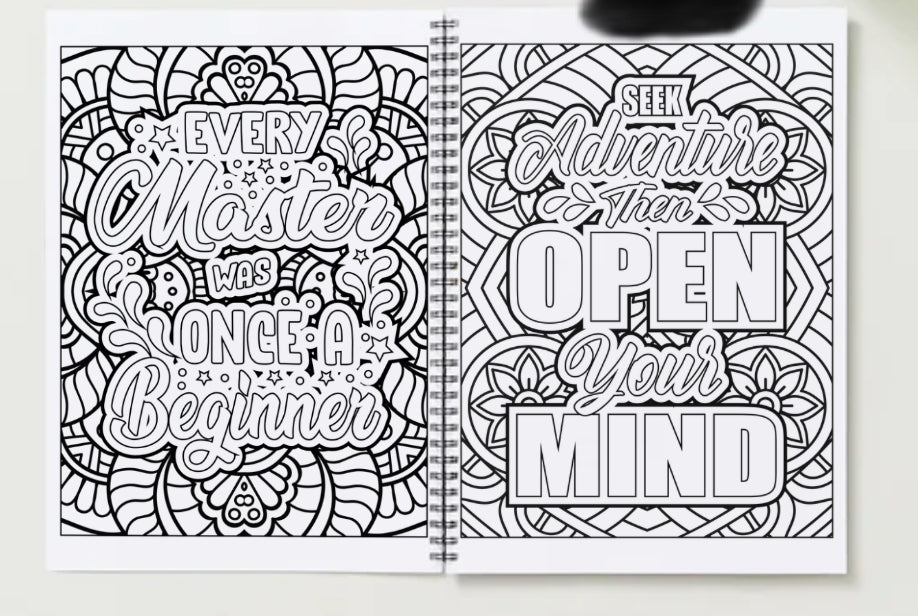 EVERY
Master
WAS
ONCE A
Beginner
SEEK
Adventure
Then
OPEN
Your
MIND